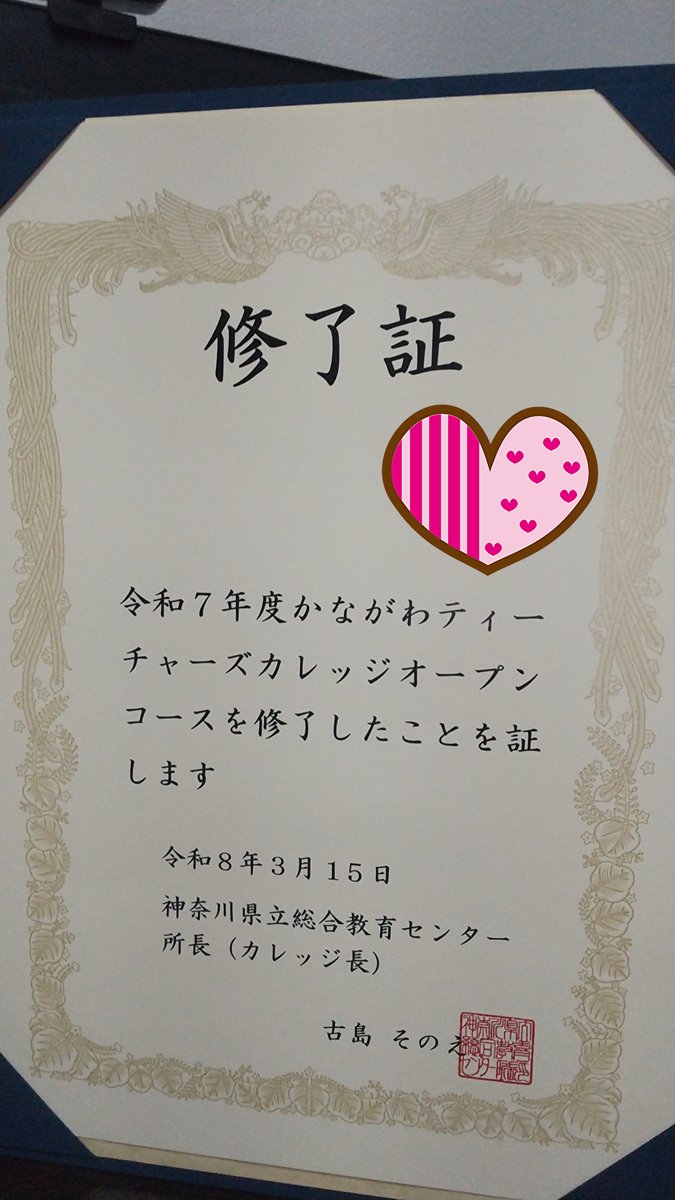 修了証
令和７年度かながわティー
チャーズカレッジオープン
コースを修了したことを証
します
令和８年３月１５日
神奈川県立総合教育センター
所長（カレッジ長）
古島 そのえ